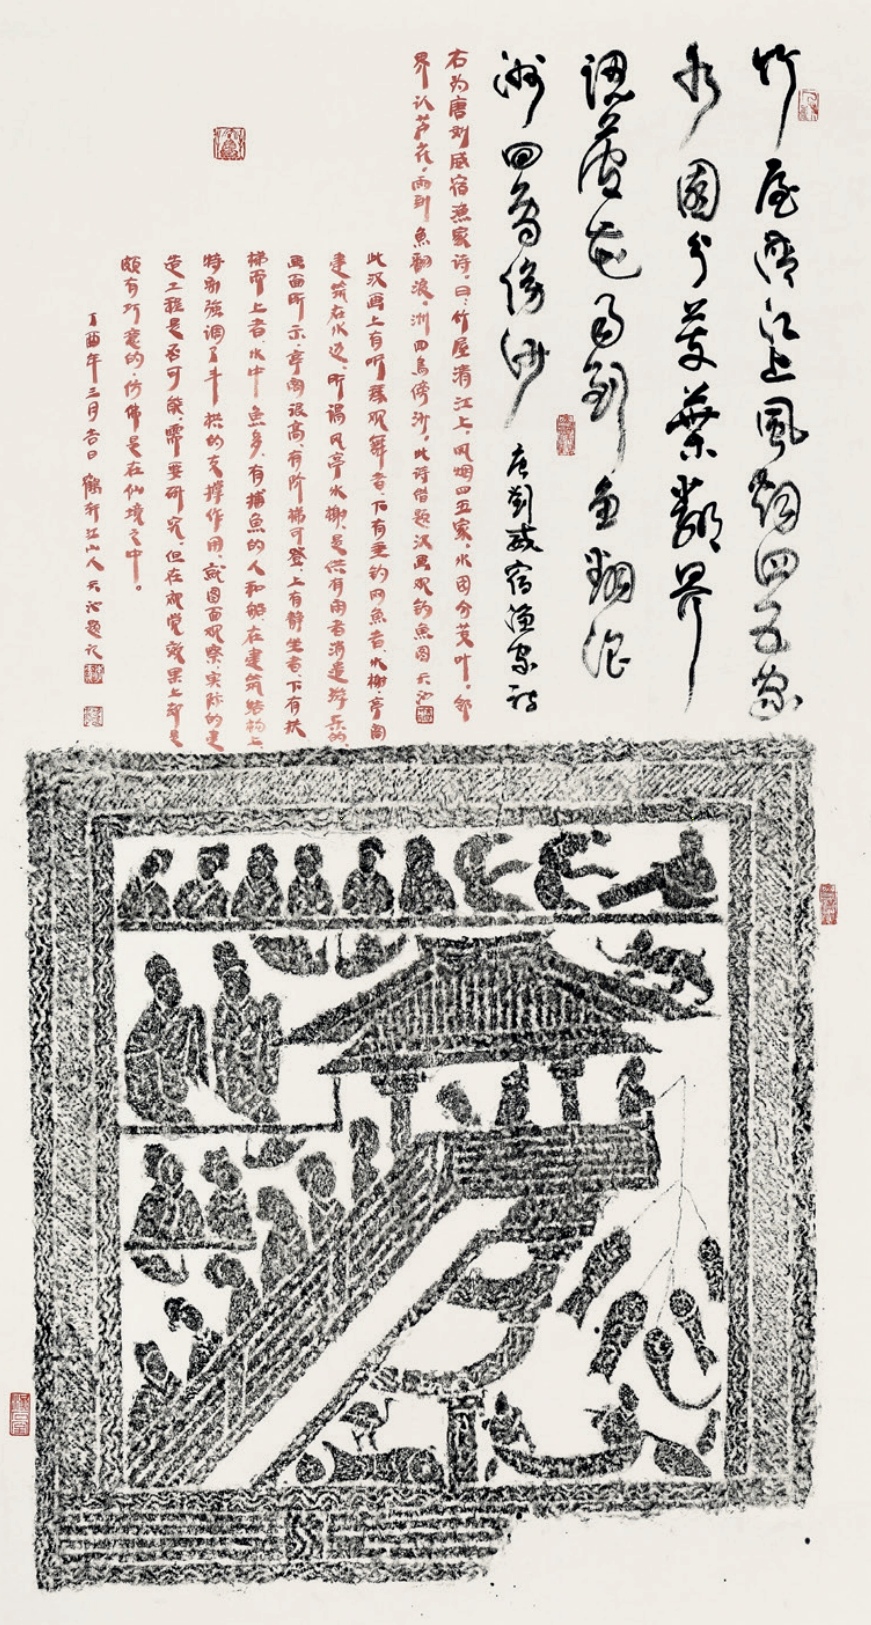 竹屋清江上風烟四五家
水園分芰葉鄰界
認蘆花雨到魚翻浪
洲回鳥傍沙
唐劉威宿漁家詩
右为唐刘威宿渔家诗。曰：竹屋清江上，风烟四五家，水园分芰叶，邻
界认芦花，雨到鱼翻浪，洲回鸟傍沙。此诗借题汉画观钓鱼图 天池
此汉画上有听琴观舞者，下有垂钓网鱼者，水榭亭阁
建筑在水边，所谓风亭水榭，是供有闲者消遣游乐的，
画面所示，亭阁很高，有阶梯可登，上有静坐者，下有扶
梯而上者，水中鱼多，有捕鱼的人和船，在建筑结构上
特别强调了斗拱的支撑作用，就图面观察，实际的建
造工程是否可能，需要研究，但在视觉效果上却是
颇有巧意的，仿佛是在仙境之中。
丁酉年三月吉日 鹤新江山人 天池题记